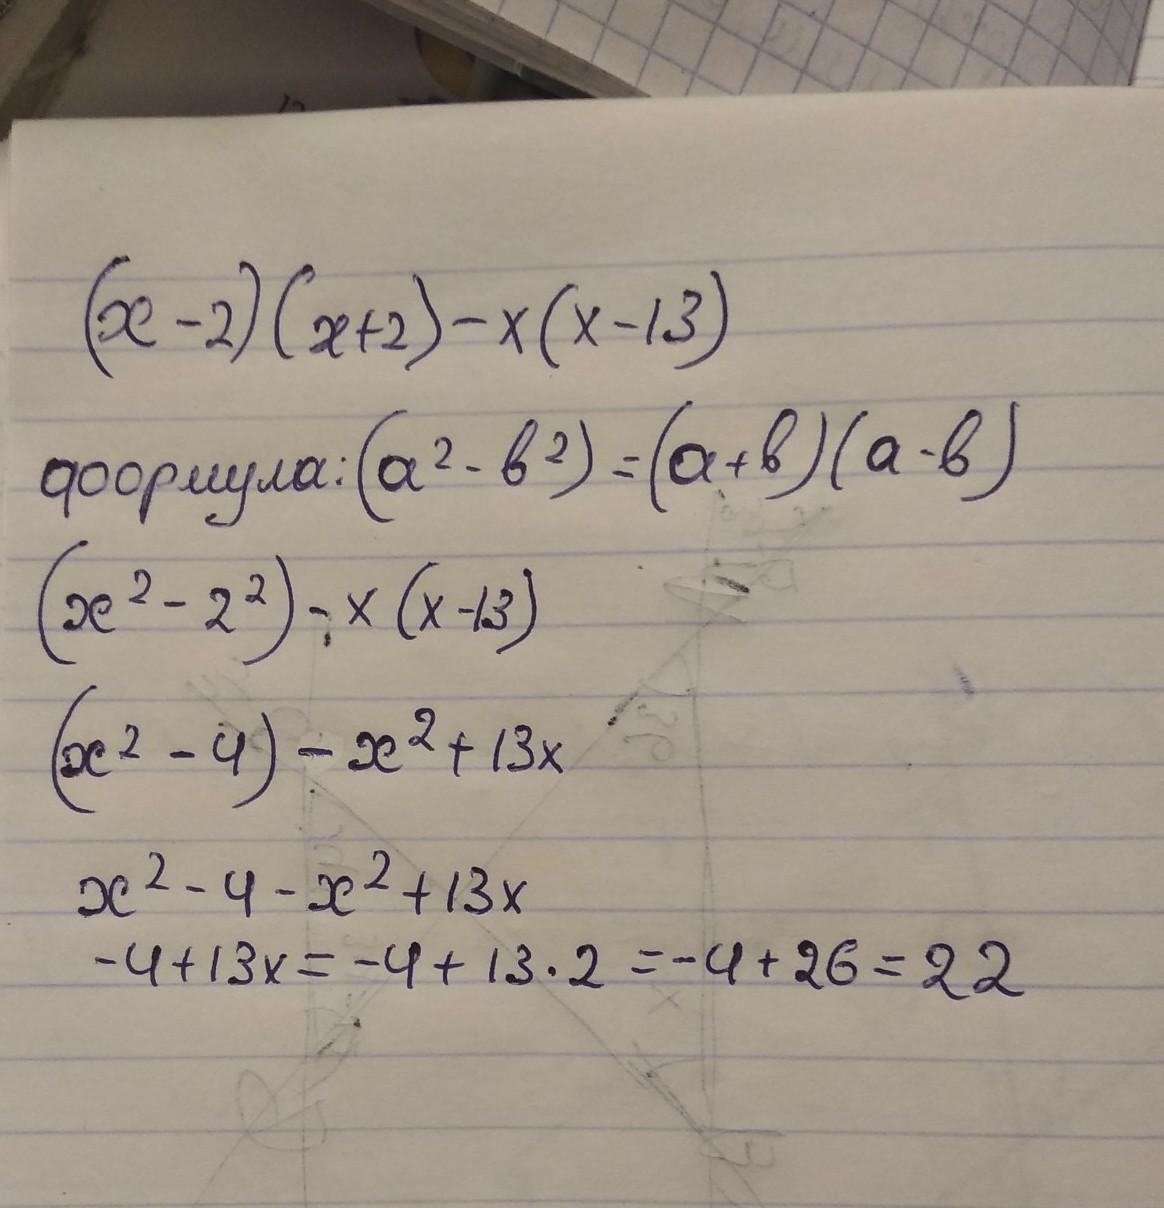 (x-2)(x+2)-x(x-13)
формула: (a²-b²)=(a+b)(a-b)
(x²-2²)-x(x-13)
(x²-4)-x²+13x
x²-4-x²+13x
-4+13x=-4+13·2=-4+26=22